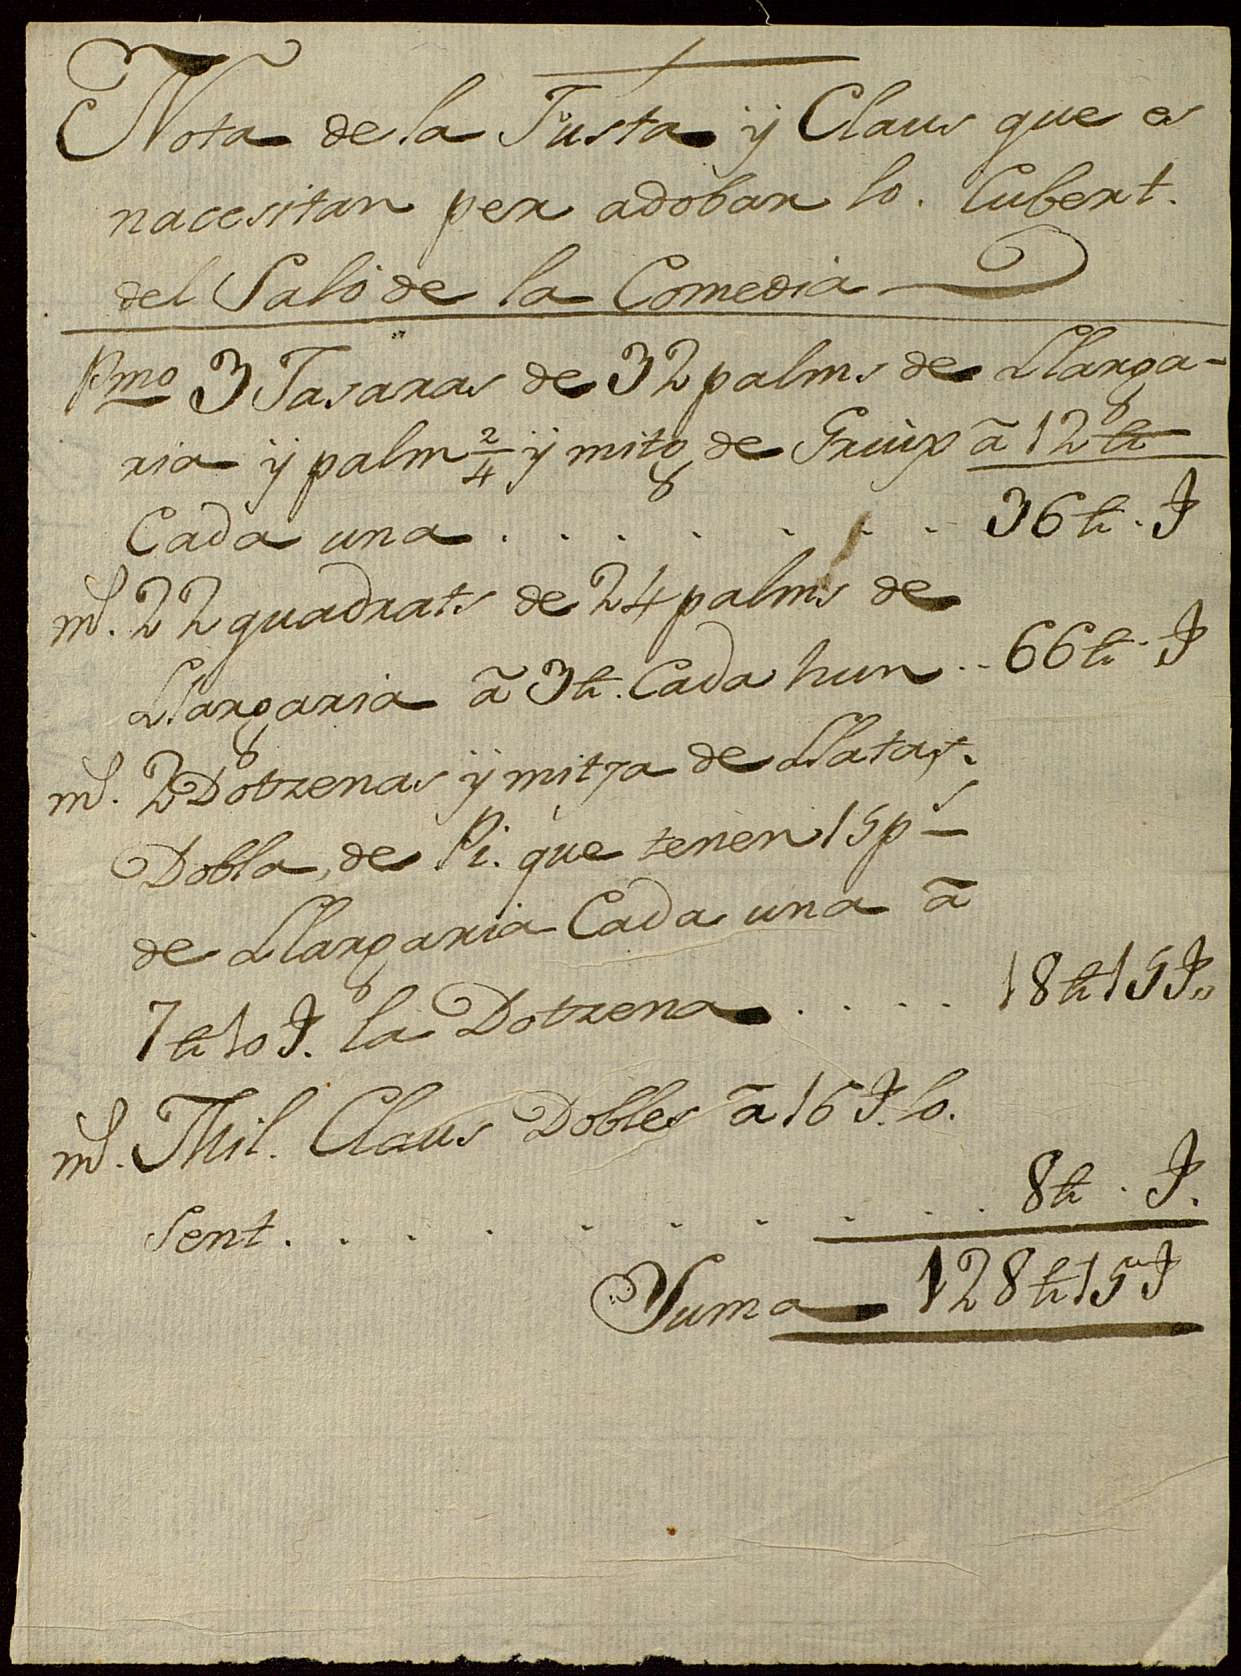 Nota de la Fusta ÿ Claus que es
nacesitan per adobar lo. Cubert.
del Saló de la Comedia
Pmo 3 Jasaras de 32 palms de Llarga-
ria ÿ palm 2/4 ÿ mitg de Gruix â 12 ₶
Cada una . . . . . . . 36 ₶ . ẛ
md. 22 quadrats de 24 palms de
Llargaria â 3 ₶. Cada hun .. 66 ₶ . ẛ
md. 2 Dotzenas ÿ mitza de Llatas.
Dobla, de Pi. que tenen 15 ps
de Llargaria Cada una â
7 ₶ 10 ẛ. la Dotzena . . . . 18 ₶ 15 ẛ
md. Mil. Claus Dobles â 16 ẛ. lo.
Sent . . . . . . . . . 8 ₶ . ẛ.
Suma 128 ₶ 15 ẛ